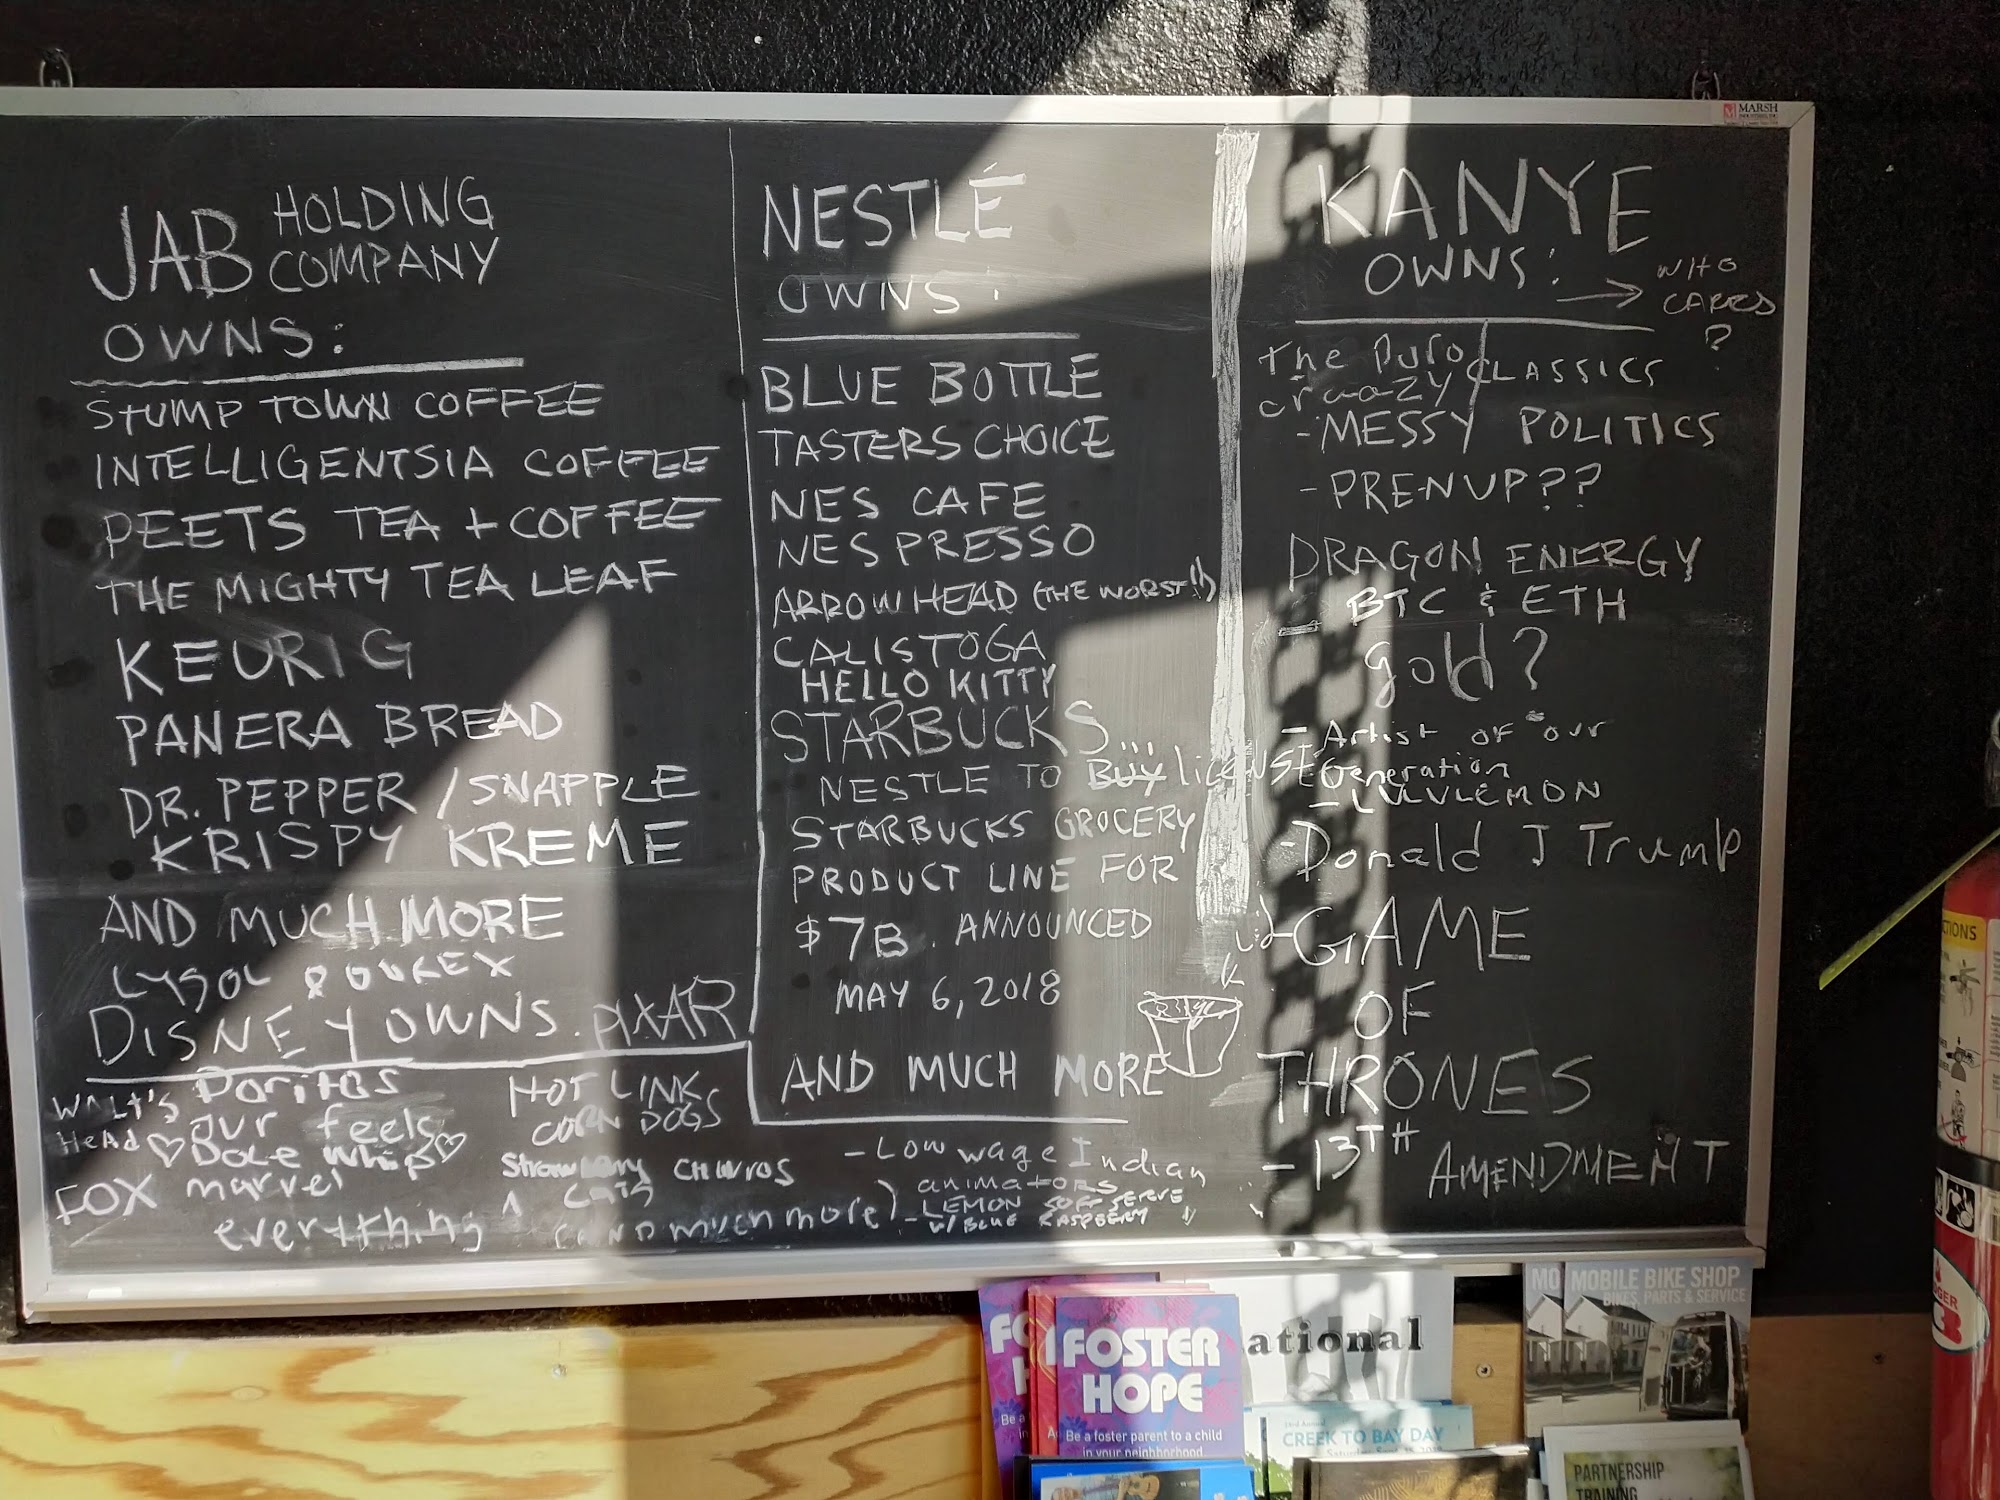 MARSH
JAB HOLDING
COMPANY
OWNS:
STUMP TOWN COFFEE
INTELLIGENTSIA COFFEE
PEETS TEA + COFFEE
THE MIGHTY TEA LEAF
KEURIG
PANERA BREAD
DR. PEPPER / SNAPPLE
KRISPY KREME
AND MUCH MORE
DISNEY OWNS. PIXAR
WALT'S
HeAD ♡
FOX
Doritos
our feels
Dole Whip ♡
marvel
everything
HOT LINK
CORN DOGS
CHURROS
(AND much more)
- Low wage Indian
animators
- LEMON SOFT SERVE
W/ BLUE RASPBERRY
NESTLÉ
OWNS:
BLUE BOTTLE
TASTERS CHOICE
NES CAFE
NESPRESSO
ARROWHEAD (THE WORST!!)
CALISTOGA
HELLO KITTY
STARBUCKS...
NESTLE TO BUY licENSE
STARBUCKS GROCERY
PRODUCT LINE FOR
$7B. ANNOUNCED
MAY 6, 2018
AND MUCH MORE
KANYE
OWNS:
→ WHO
CARES
?
The Puro CLASSICS
craazy
- MESSY POLITICS
- PRENUP??
DRAGON ENERGY
BTC & ETH
gold?
- Artist of our
Generation
- LULULEMON
- Donald J Trump
GAME
OF
THRONES
- 13TH AMENDMENT
FOSTER
HOPE
Be a foster parent to a child
in your neighborhood
ational
CREEK TO BAY DAY
MOBILE BIKE SHOP
BIKES, PARTS & SERVICE
PARTNERSHIP
TRAINING